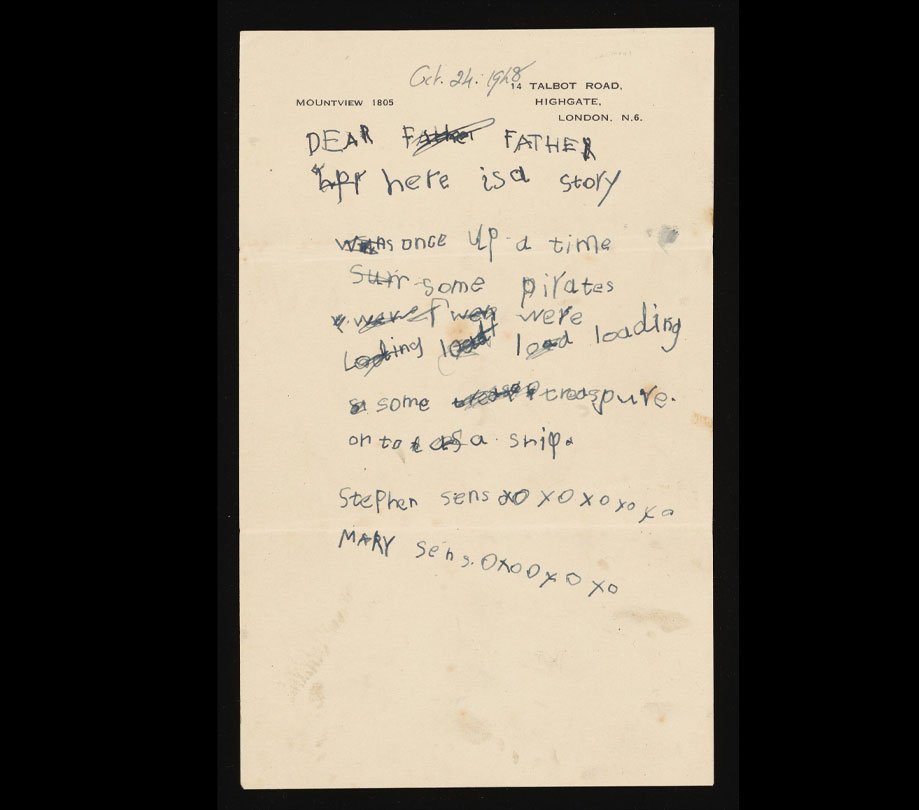 Oct. 24. 1948
14 TALBOT ROAD,
MOUNTVIEW 1805 HIGHGATE,
LONDON, N.6.
DEAR Father FATHER
here is a story
once up a time
some pirates
were
Loading load loading
some treaspure.
on to a ship.
Stephen sens xo xo xo xo xo
MARY sens. oxoo xo xo